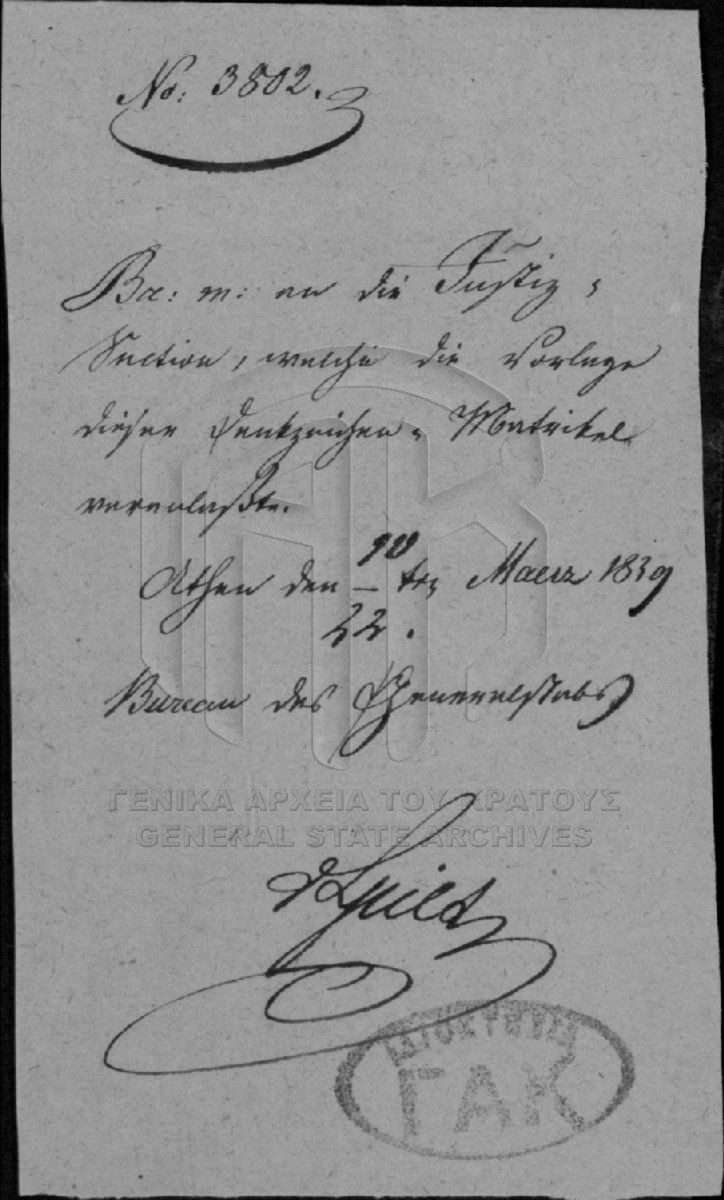 No: 3802.
Br: m: an die Justiz=
Section, welche die Vorlage
dieser Denkzeichen=Matrikel
veranlaßte.
Athen den 10/22. ten Maerz 1839
Bureau des Generalstabs
ΓΕΝΙΚΑ ΑΡΧΕΙΑ ΤΟΥ ΚΡΑΤΟΥΣ
GENERAL STATE ARCHIVES
ΙΔΙΟΚΤΗΣΙΑ
ΓΑΚ